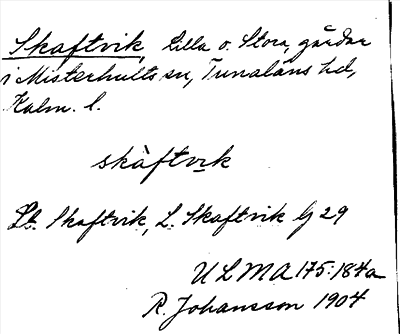 Skaftvik, Lilla o. Stora, gårdar
i Misterhults sn, Tunaläns hd,
Kalm. l.
skàftvɩk
St. Skaftvik, L. Skaftvik G 29
ULMA 175:184a
R. Johansson 1904